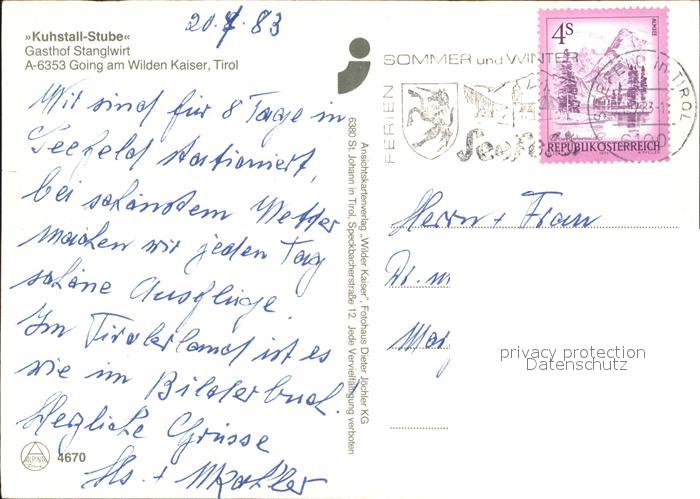 20.7.83
»Kuhstall-Stube«
Gasthof Stanglwirt
A-6353 Going am Wilden Kaiser, Tirol
Wir sind für 8 Tage in
Seefeld stationiert,
bei schönstem Wetter
machen wir jeden Tag
schöne Ausflüge.
Im Tirolerland ist es
wie im Bilderbuch.
Herzliche Grüsse
Hs. +
ALPINA
4670
Ansichtskartenverlag „Wilder Kaiser", Fotohaus Dieter Jöchler KG
6380 St. Johann in Tirol, Speckbacherstraße 12. Jede Vervielfältigung verboten
SOMMER und WINTER
FERIEN
Seefeld
SEEFELD in TIROL
4 S
ALMSEE
REPUBLIK ÖSTERREICH
Herrn + Frau
privacy protection
Datenschutz